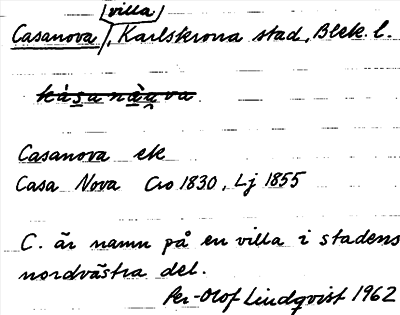 villa
Casanova, Karlskrona stad, Blek. l.
kàsanàava
Casanova ek
Casa Nova Cro 1830, Lj 1855
C. är namn på en villa i stadens
nordvästra del.
Per-Olof Lindqvist 1962